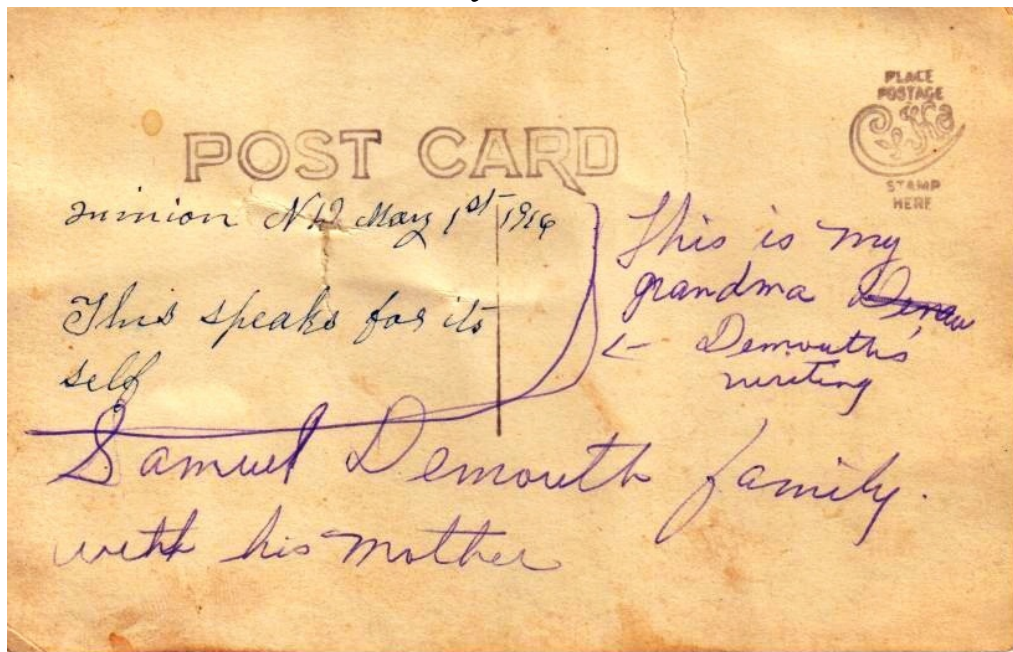 POST CARD
PLACE
POSTAGE
STAMP
HERE
May 1st 1916
This speaks for its
self
This is my
grandma
← Demouth's
writing
Samuel Demouth family.
with his mother